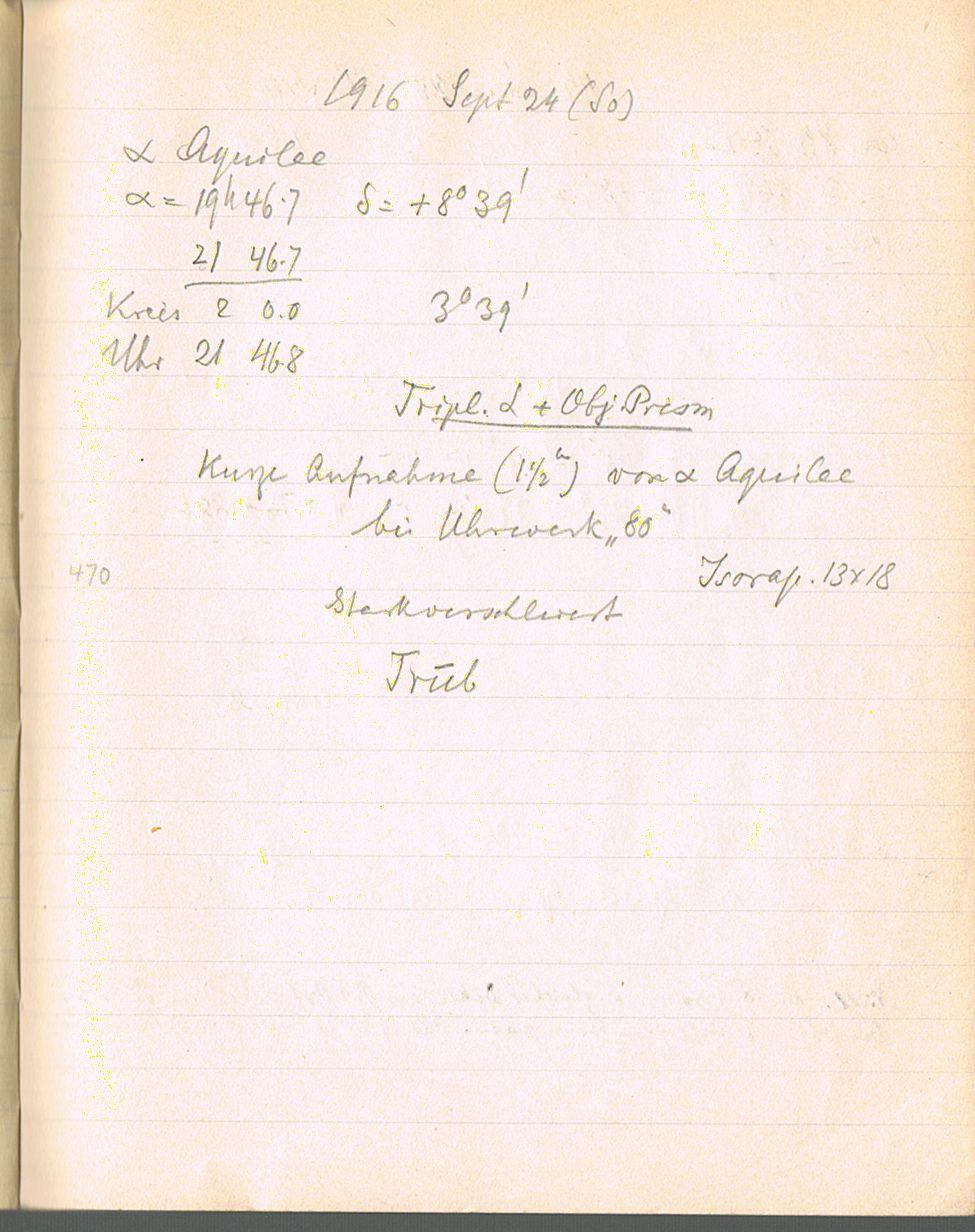 1916 Sept 24 (So)
α Aquilae
α = 19h 46.7 δ = +8° 39'
21 46.7
Kreis 2 0.0 3° 39'
Uhr 21 46.8
Tripl. α + Obj. Prism
Kurze Aufnahme (1 1/2 h) von α Aquilae
bei Uhrwerk „80“
470
Isorap. 13x18
Stark verschleiert
Trüb